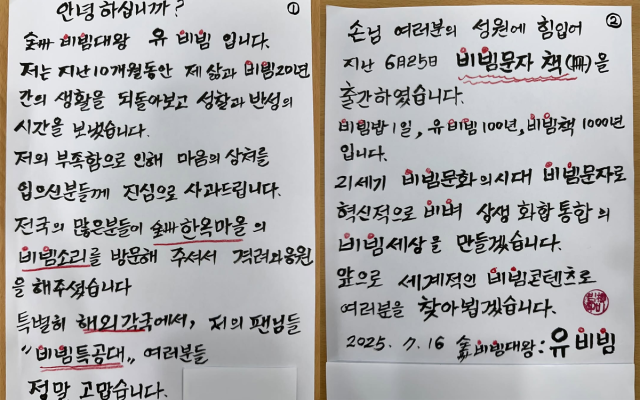 ①
안녕하십니까?
비빔대왕 유 비빔 입니다.
저는 지난10개월동안 제 삶과 비빔20년
간의 생활을 되돌아보고 성찰과 반성의
시간을 보냈습니다.
저의 부족함으로 인해 마음의 상처를
입으신분들께 진심으로 사과드립니다.
전국의 많은분들이 한옥마을의
비빔소리를 방문해 주셔서 격려와응원
을 해주셨습니다
특별히 해외각국에서, 저의 팬님들
"비빔특공대„ 여러분들
정말 고맙습니다.
②
손님 여러분의 성원에 힘입어
지난 6月25日 비빔문자 책(冊)을
출간하였습니다.
비빔밥1일, 유비빔100년, 비빔책 1000년
입니다.
21세기 비빔문화의시대 비빔문자로
혁신적으로 비벼 상생 화합통합의
비빔세상을 만들겠습니다.
앞으로 세계적인 비빔콘텐츠로
여러분을 찾아뵙겠습니다.
2025. 7.16 비빔대왕: 유 비빔